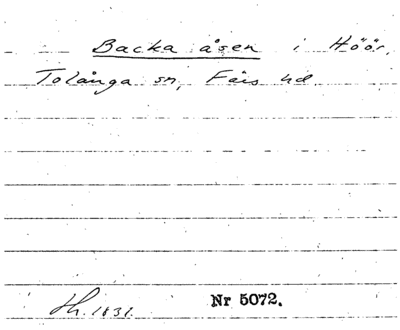 Backa åsen i Höör,
Tolånga sn, Färs hd
Sk. 1831. Nr 5072.